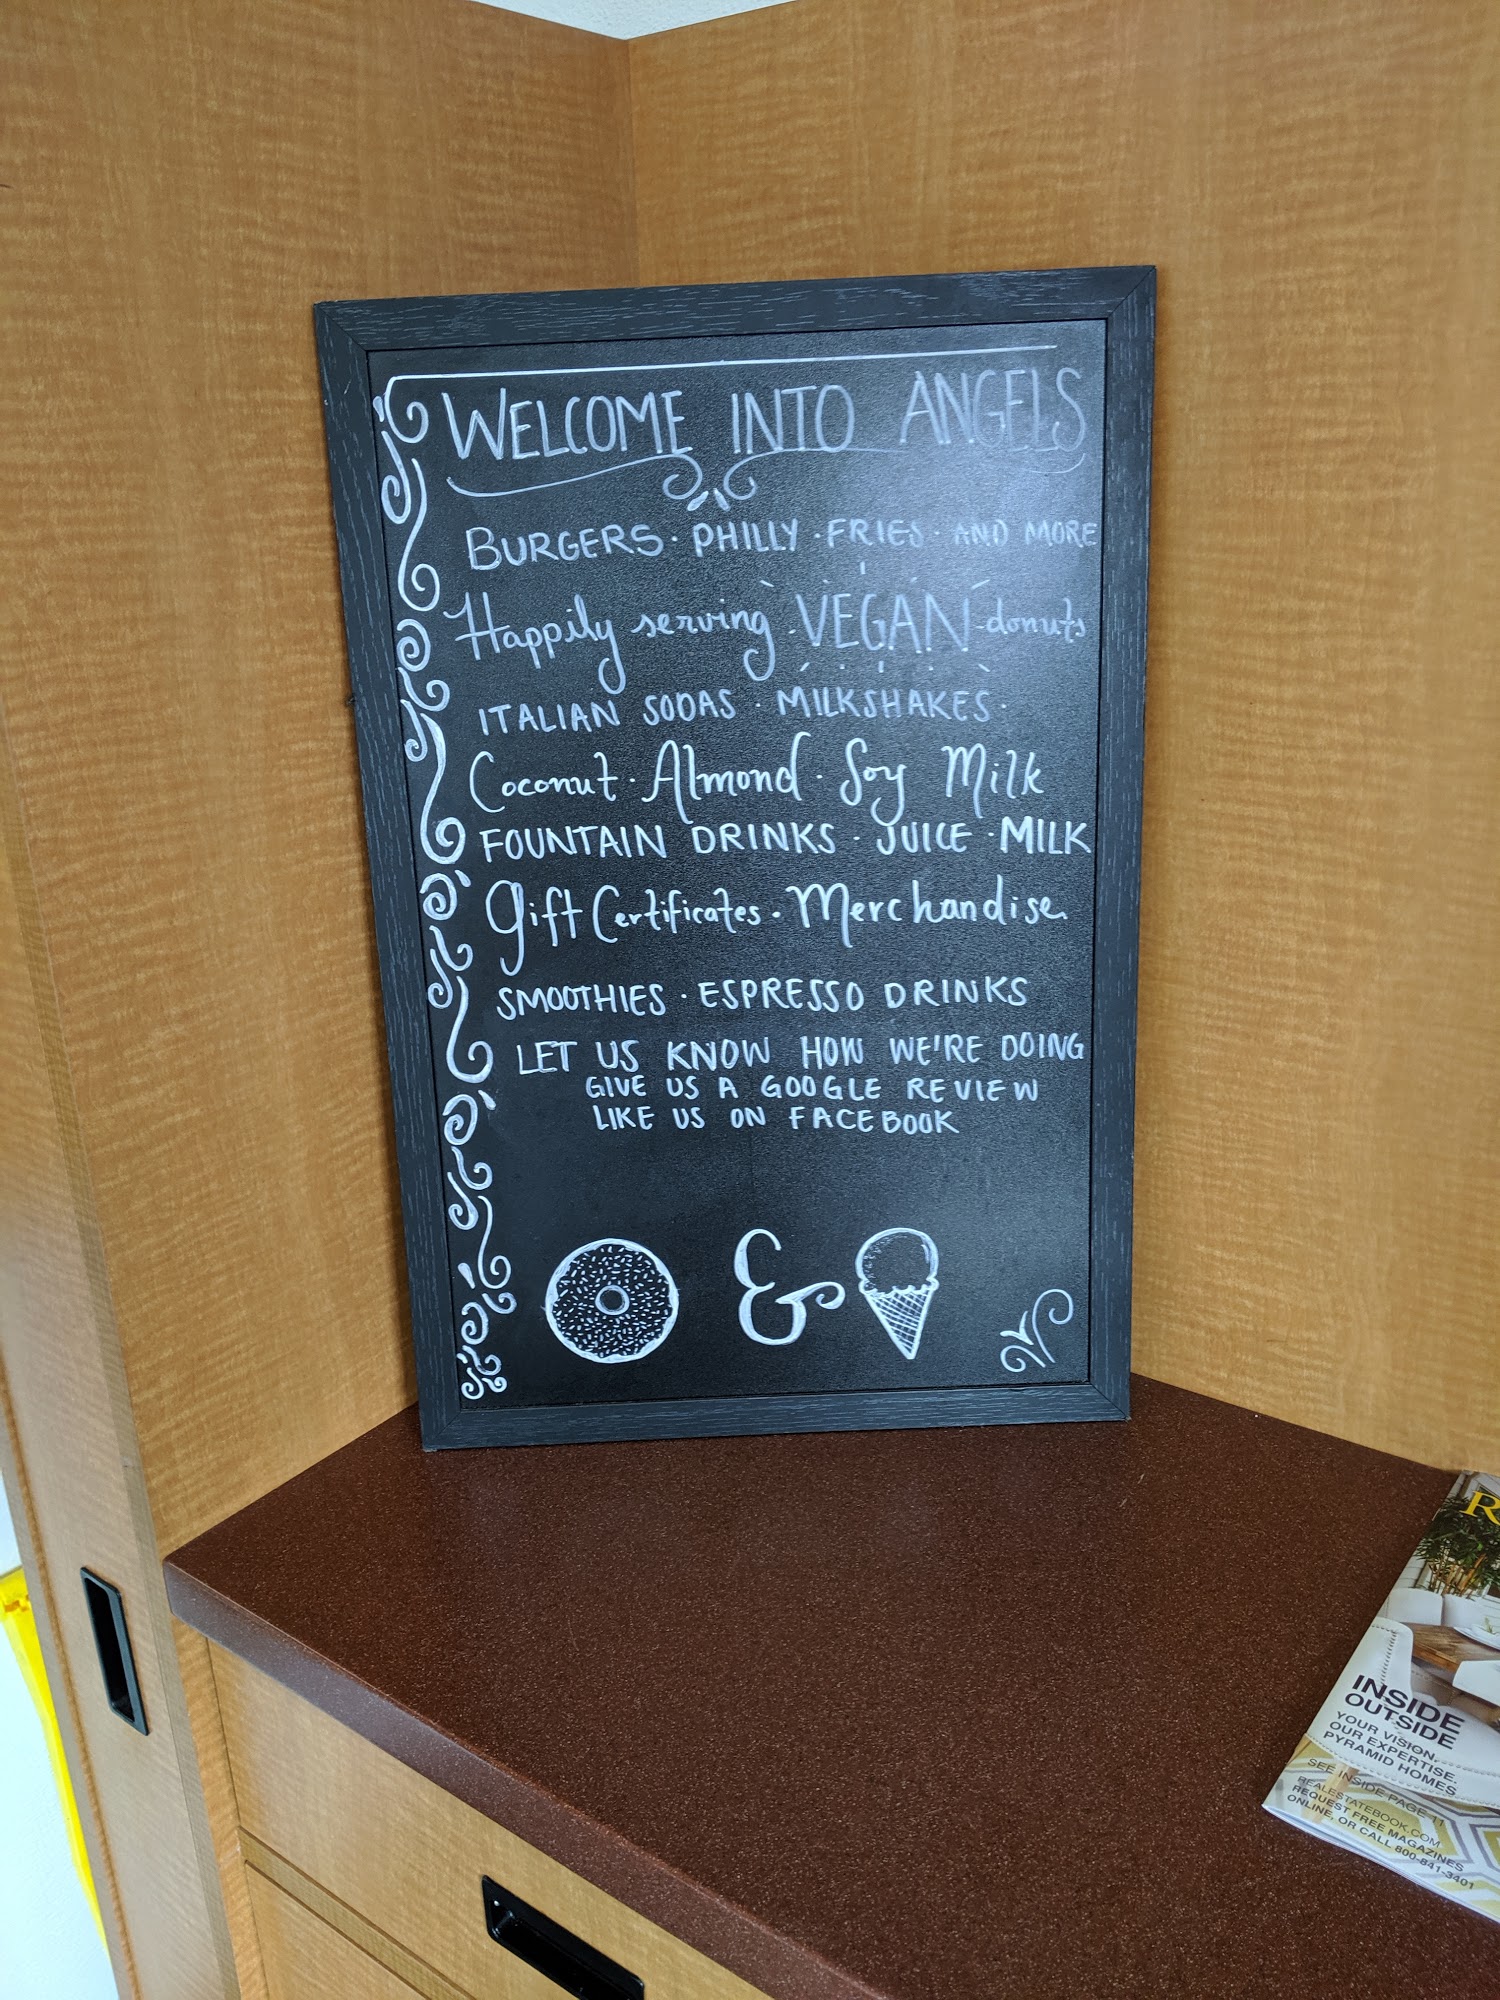 WELCOME INTO ANGELS
BURGERS · PHILLY · FRIES · AND MORE
Happily serving VEGAN donuts
ITALIAN SODAS · MILKSHAKES ·
Coconut · Almond · Soy Milk
FOUNTAIN DRINKS · JUICE · MILK
Gift Certificates · Merchandise
SMOOTHIES · ESPRESSO DRINKS
LET US KNOW HOW WE'RE DOING
GIVE US A GOOGLE REVIEW
LIKE US ON FACEBOOK
&
R
INSIDE
OUTSIDE
YOUR VISION.
OUR EXPERTISE.
PYRAMID HOMES
SEE INSIDE PAGE 11
REALESTATEBOOK.COM
REQUEST FREE MAGAZINES
ONLINE, OR CALL 800-841-3401